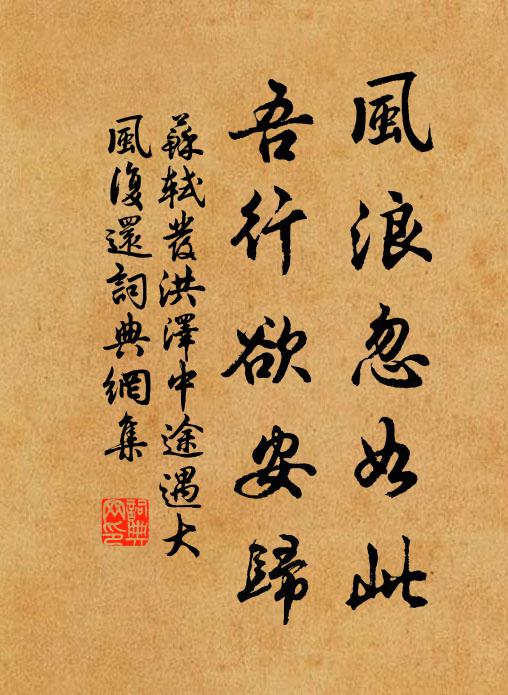 風浪忽如此
吾行欲安歸
蘇軾發洪澤中途遇大
風復還詞典網集
詞典
网印